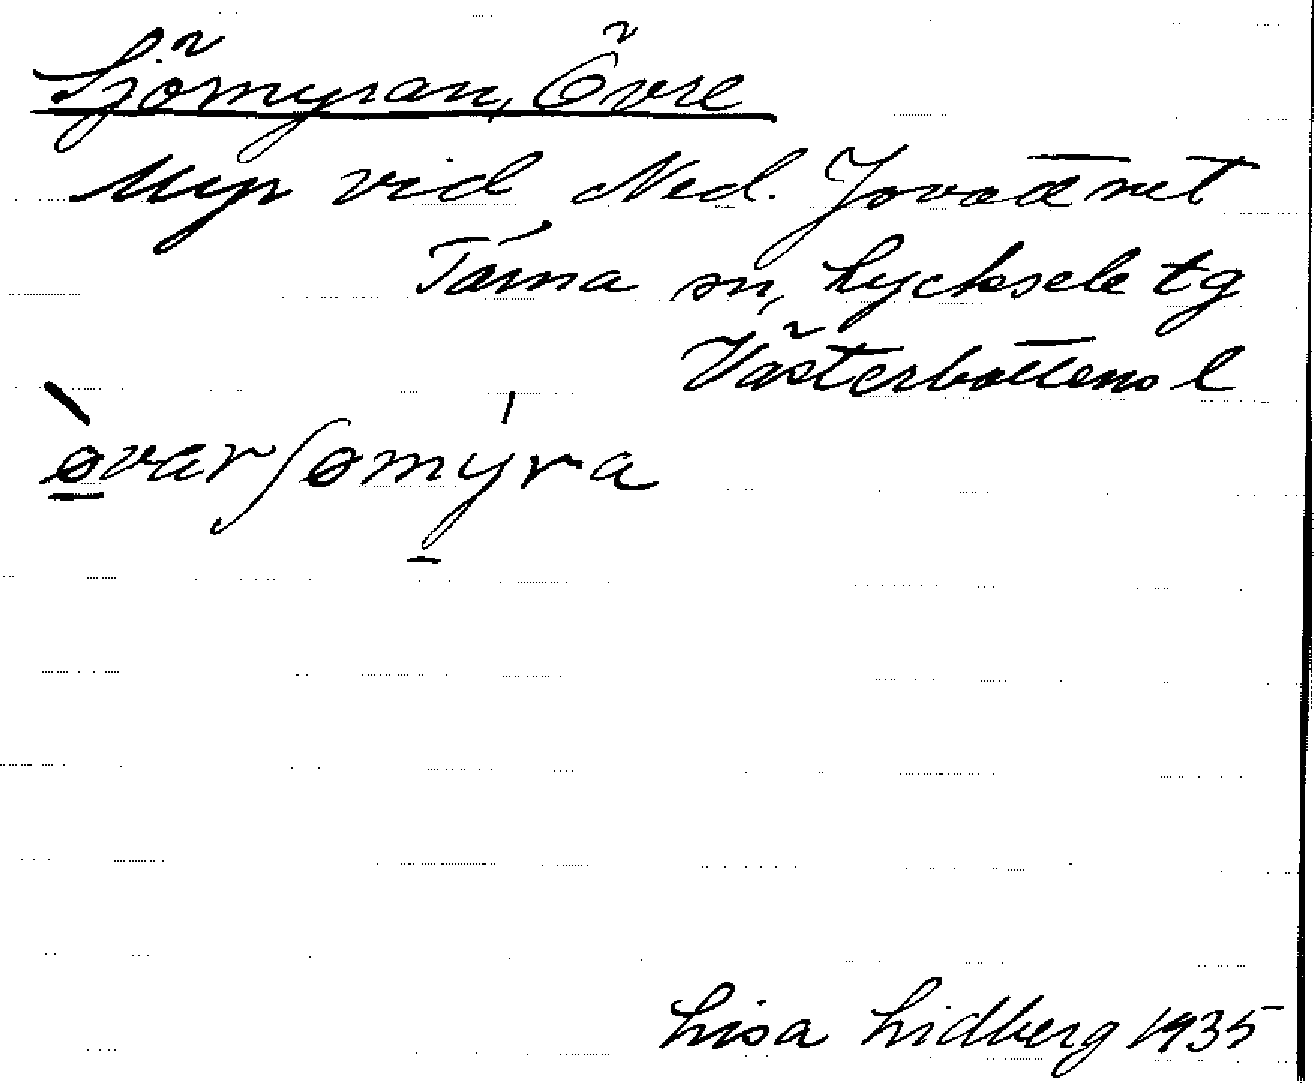 Sjömyran, Övre
Myr vid Ned. Jovattnet
Tärna sn, Lycksele tg
Västerbottens l
ə̀varʃəmýra
Lisa Lidberg 1935